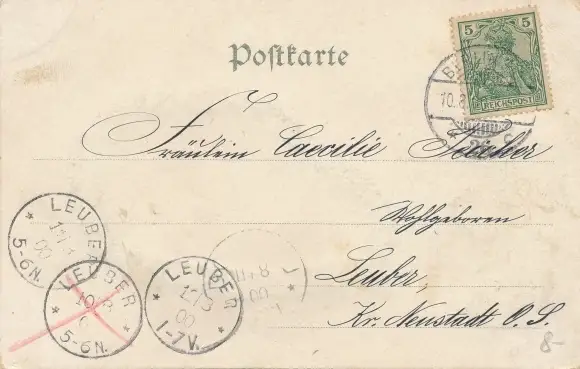 Postkarte
5
REICHSPOST
10.8
Fräulein Caecilie
Wohlgeboren
Leuber,
Kr. Neustadt O. S.
LEUBER
00
5-6N.
LEUBER
10 8
5-6N.
LEUBER
00
1-7V.
8-